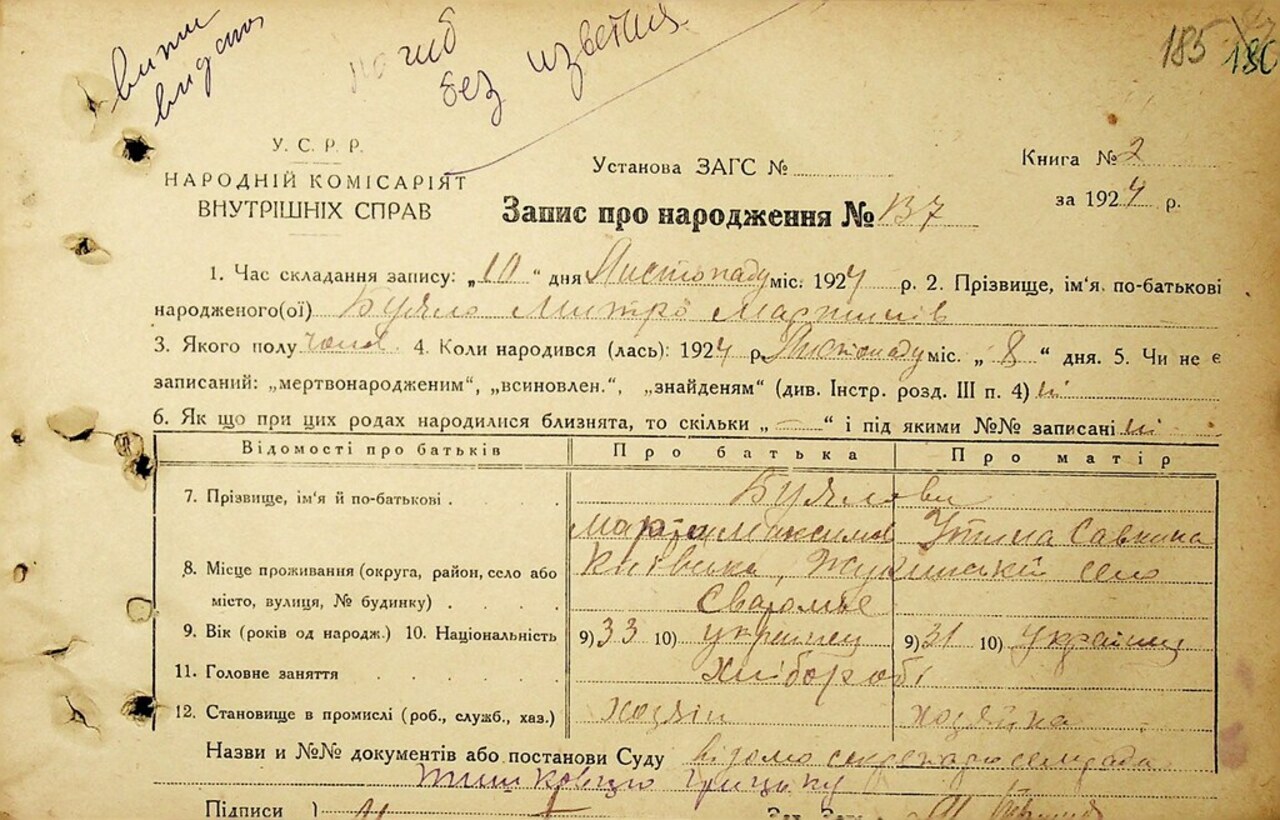 випис
видано
погиб
без известия
185
180
У. С. Р. Р.
НАРОДНІЙ КОМІСАРІЯТ
ВНУТРІШНІХ СПРАВ
Установа ЗАГС №
Книга № 2
за 1924 р.
Запис про народження № 137
1. Час складання запису: „10“ дня Листопаду міс. 1924 р. 2. Прізвище, ім'я, по-батькові
народженого(ої) Буяло Митро Мартинів
3. Якого полу чолов. 4. Коли народився (лась): 1924 р. Листопаду міс. „8“ дня. 5. Чи не є
записаний: „мертвонародженим“, „всиновлен.“, „знайденям“ (див. Інстр. розд. III п. 4) ні
6. Як що при цих родах народилися близнята, то скільки „—“ і під якими №№ записані ні
Відомості про батьків Про батька Про матір
7. Прізвище, ім'я й по-батькові . Буялови
Мартин Максимів Савкина
8. Місце проживання (округа, район, село або Київська, село
місто, вулиця, № будинку) . . . . Сваромьє
9. Вік (років од народж.) 10. Національність 9) 33 10) українец 9) 31 10) українец
11. Головне заняття . . . . . . Хлібороби
12. Становище в промислі (роб., служб., хаз.) хозяін хозяйка
Назви и №№ документів або постанови Суду відомо секретарю сельрада
Грицьку
Підписи )